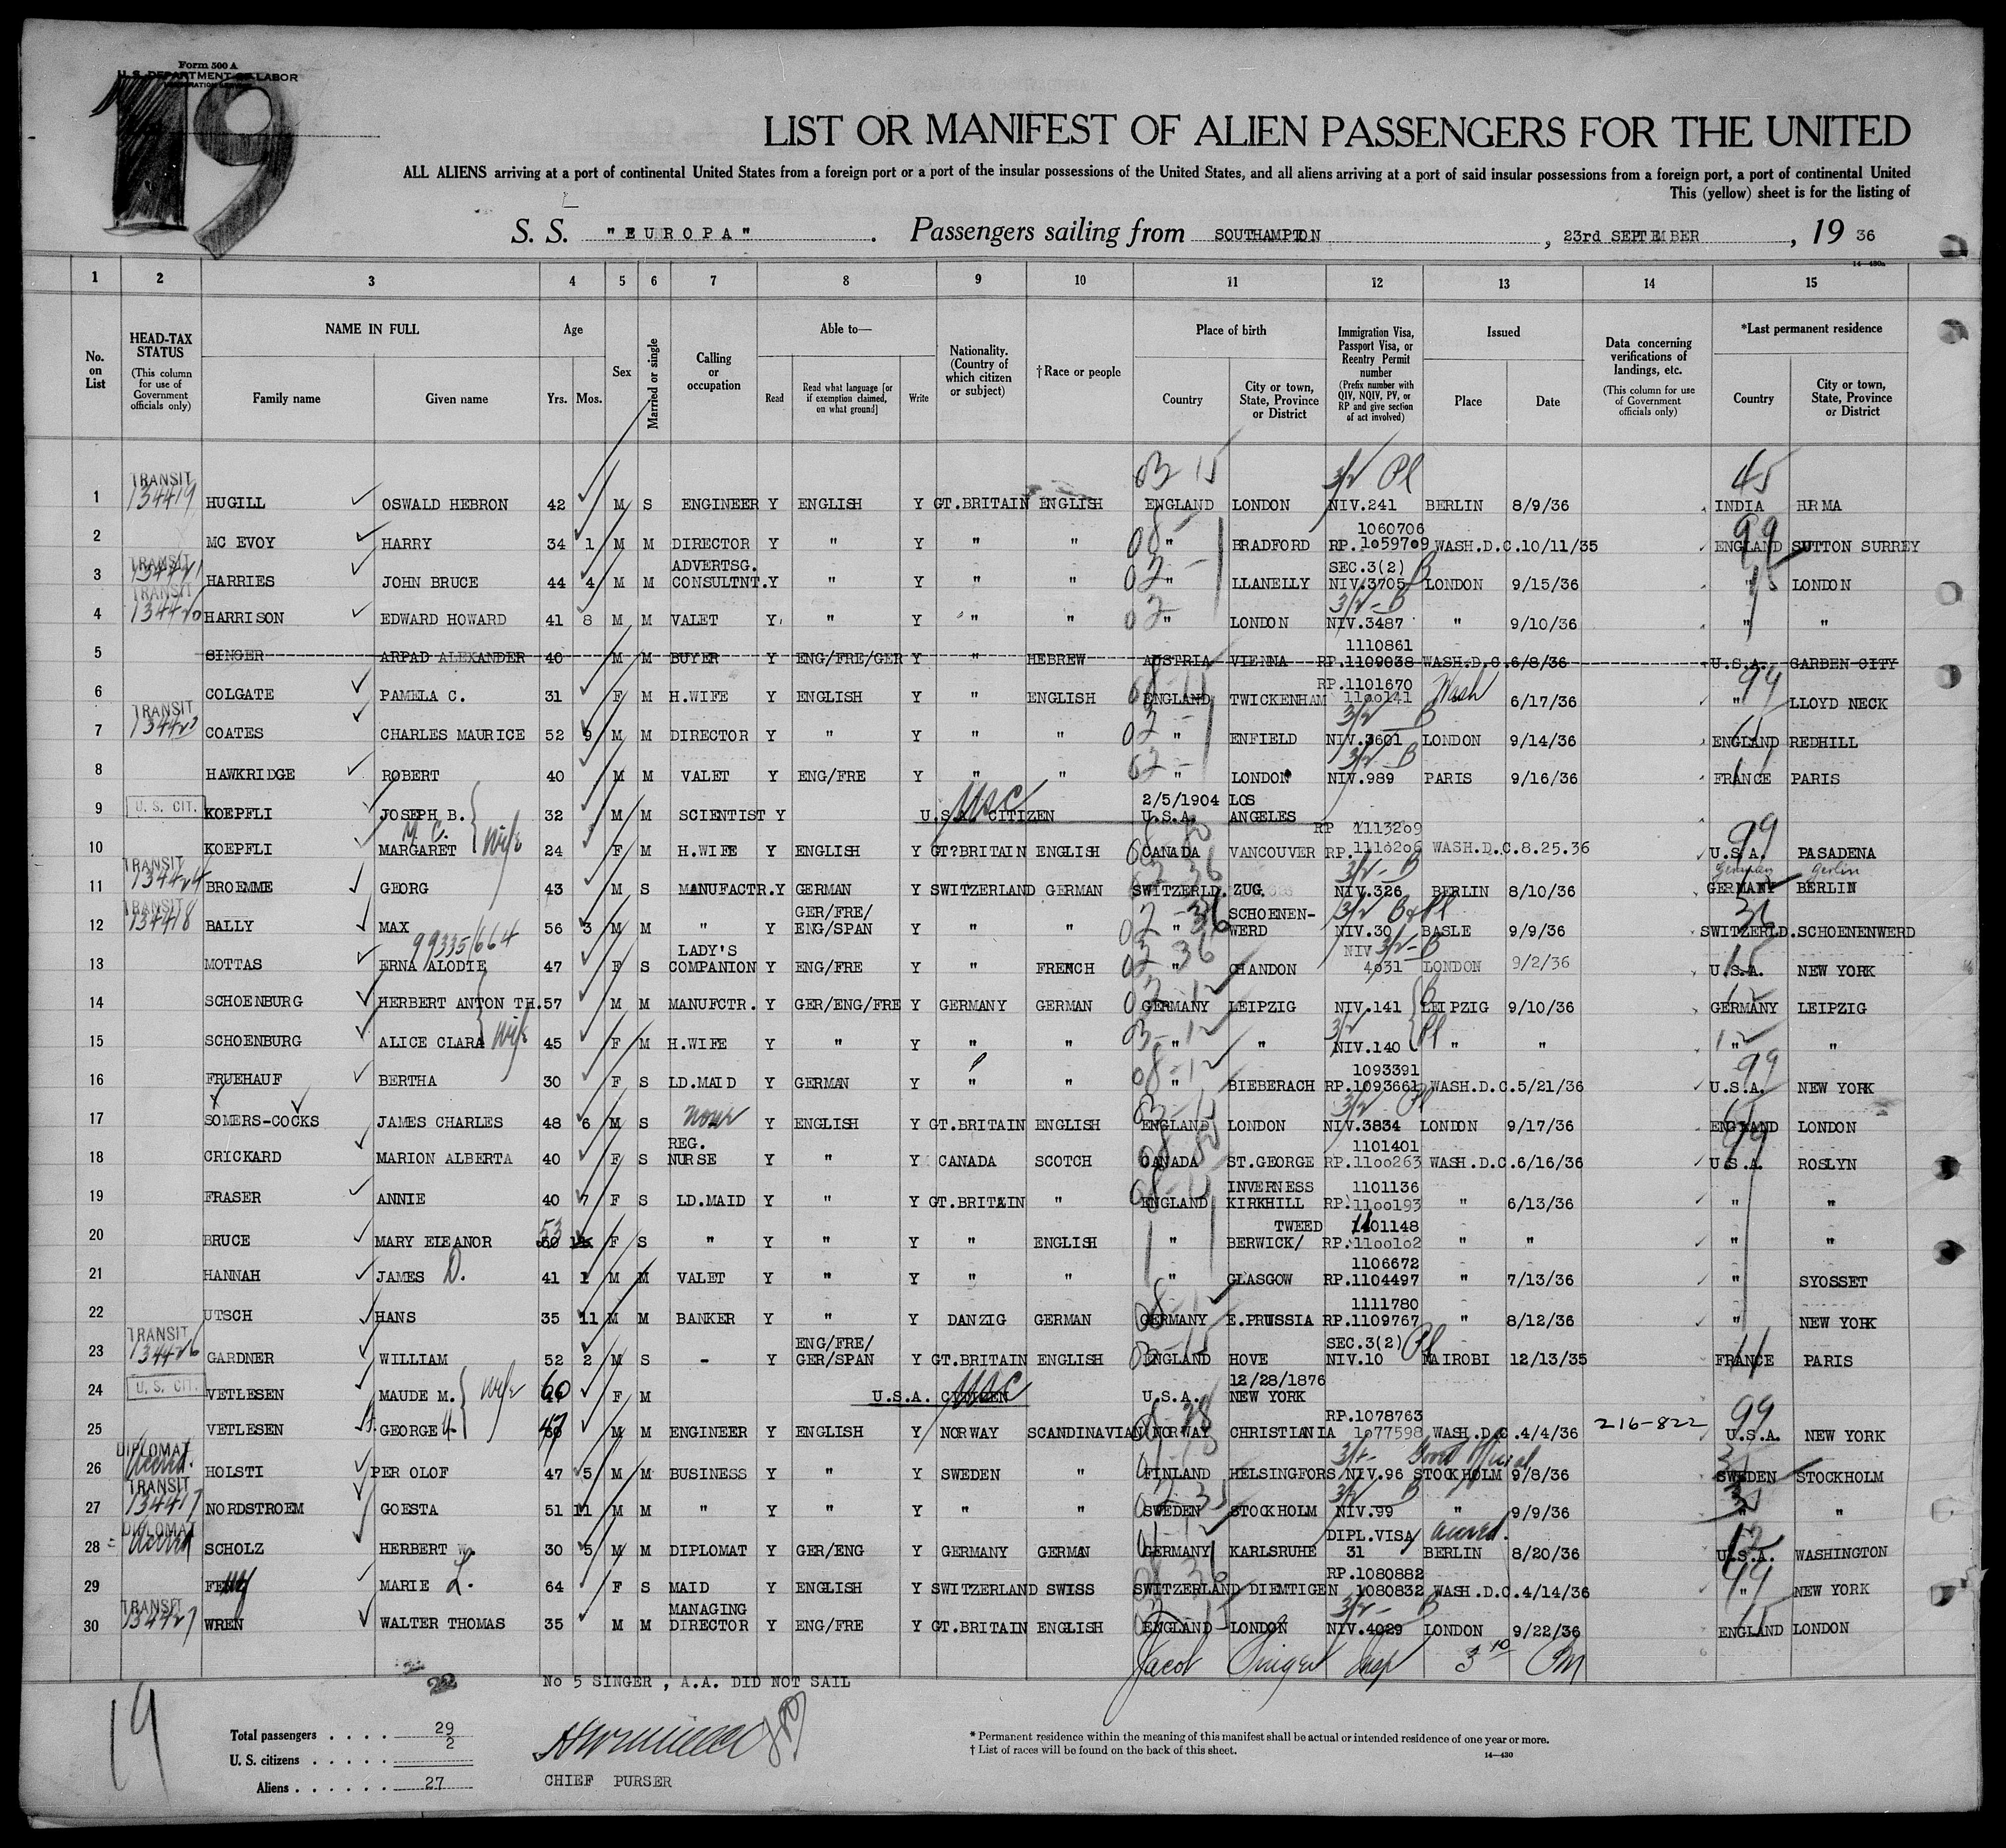 Form 500 A
U. S. DEPARTMENT OF LABOR
19
LIST OR MANIFEST OF ALIEN PASSENGERS FOR THE UNITED
ALL ALIENS arriving at a port of continental United States from a foreign port or a port of the insular possessions of the United States, and all aliens arriving at a port of said insular possessions from a foreign port, a port of continental United
This (yellow) sheet is for the listing of
S. S. "EUROPA" . Passengers sailing from SOUTHAMPTON , 23rd SEPTEMBER , 19 36
14—430a
1 2 3 4 5 6 7 8 9 10 11 12 13 14 15
No. on List
HEAD-TAX STATUS (This column for use of Government officials only)
NAME IN FULL Family name Given name
Age Yrs. Mos.
Sex
Married or single
Calling or occupation
Able to— Read Read what language [or if exemption claimed, on what ground] Write
Nationality. (Country of which citizen or subject)
† Race or people
Place of birth Country City or town, State, Province or District
Immigration Visa, Passport Visa, or Reentry Permit number (Prefix number with QIV, NQIV, PV, or RP and give section of act involved)
Issued Place Date
Data concerning verifications of landings, etc. (This column for use of Government officials only)
*Last permanent residence Country City or town, State, Province or District
03 15 3/2 Pl 45
1 TRANSIT 134419 HUGILL OSWALD HEBRON 42 M S ENGINEER Y ENGLISH Y GT.BRITAIN ENGLISH ENGLAND LONDON NIV.241 BERLIN 8/9/36 INDIA HRMA
1060706 99
2 MC EVOY HARRY 34 1 M M DIRECTOR Y " Y " " 08 " BRADFORD RP.1059709 WASH.D.C.10/11/35 ENGLAND SUTTON SURREY
ADVERTSG. SEC.3(2) B
3 TRANSIT 134421 HARRIES JOHN BRUCE 44 4 M M CONSULTNT. Y " Y " " 02 " LLANELLY NIV.3705 LONDON 9/15/36 " LONDON
3/2-B
4 TRANSIT 134420 HARRISON EDWARD HOWARD 41 8 M M VALET Y " Y " " 02 " LONDON NIV.3487 " 9/10/36 " "
1110861
5 SINGER ARPAD ALEXANDER 40 M M BUYER Y ENG/FRE/GER Y " HEBREW AUSTRIA VIENNA RP.1109038 WASH.D.C.6/8/36 U.S.A. GARDEN CITY
RP.1101670 99
6 COLGATE PAMELA C. 31 F M H.WIFE Y ENGLISH Y " ENGLISH ENGLAND TWICKENHAM 1100141 Wash 6/17/36 " LLOYD NECK
3/2 - B
7 TRANSIT COATES CHARLES MAURICE 52 9 M M DIRECTOR Y " Y " " 02 " ENFIELD NIV.3601 LONDON 9/14/36 ENGLAND REDHILL
3/2 - B
8 HAWKRIDGE ROBERT 40 M M VALET Y ENG/FRE Y " " 02 " LONDON NIV.989 PARIS 9/16/36 FRANCE PARIS
USC 2/5/1904 LOS
9 U. S. CIT. KOEPFLI JOSEPH B. 32 M M SCIENTIST Y U.S.A. CITIZEN U.S.A. ANGELES
M. C. Wife RP 1113209 99
10 KOEPFLI MARGARET 24 F M H.WIFE Y ENGLISH Y GT?BRITAIN ENGLISH CANADA VANCOUVER RP.1110206 WASH.D.C.8.25.36 U.S.A. PASADENA
36 3/2 - B German Berlin
11 TRANSIT 134424 BROEMME GEORG 43 M S MANUFACTR. Y GERMAN Y SWITZERLAND GERMAN SWITZERLD. ZUG. NIV.326 BERLIN 8/10/36 GERMANY BERLIN
GER/FRE/ 02-36 SCHOENEN- 36
12 TRANSIT 134418 BALLY MAX 56 3 M M " Y ENG/SPAN Y " " " WERD NIV.30 BASLE 9/9/36 SWITZERLD. SCHOENENWERD
99335/664 LADY'S 36 NIV 3/2-B
13 MOTTAS ERNA ALODIE 47 F S COMPANION Y ENG/FRE Y " FRENCH 02 " CHANDON 4031 LONDON 9/2/36 U.S.A. NEW YORK
14 SCHOENBURG HERBERT ANTON TH. 57 M M MANUFCTR. Y GER/ENG/FRE Y GERMANY GERMAN GERMANY LEIPZIG NIV.141 LEIPZIG 9/10/36 GERMANY LEIPZIG
Wife 03-12 3/2 Pl
15 SCHOENBURG ALICE CLARA 45 F M H.WIFE Y " Y " " " " NIV.140 " " 12 " "
08-12 1093391 99
16 FRUEHAUF BERTHA 30 F S LD.MAID Y GERMAN Y " " " BIEBERACH RP.1093661 WASH.D.C.5/21/36 U.S.A. NEW YORK
3/2 Pl
17 SOMERS-COCKS JAMES CHARLES 48 6 M S none Y ENGLISH Y GT.BRITAIN ENGLISH ENGLAND LONDON NIV.3834 LONDON 9/17/36 ENGLAND LONDON
REG. 1101401 99
18 CRICKARD MARION ALBERTA 40 F S NURSE Y " Y CANADA SCOTCH CANADA ST.GEORGE RP.1100263 WASH.D.C.6/16/36 U.S.A. ROSLYN
INVERNESS 1101136
19 FRASER ANNIE 40 7 F S LD.MAID Y " Y GT.BRITAIN " ENGLAND KIRKHILL RP.1100193 " 6/13/36 " "
53 TWEED 1101148
20 BRUCE MARY ELEANOR 50 F S " Y " Y " ENGLISH " BERWICK/ RP.1100102 " " " "
1106672
21 HANNAH JAMES D. 41 1 M M VALET Y " Y " " " GLASGOW RP.1104497 " 7/13/36 " SYOSSET
1111780
22 UTSCH HANS 35 11 M M BANKER Y " Y DANZIG GERMAN GERMANY E.PRUSSIA RP.1109767 " 8/12/36 " NEW YORK
ENG/FRE/ SEC.3(2) Pl
23 TRANSIT 134426 GARDNER WILLIAM 52 2 M S - Y GER/SPAN Y GT.BRITAIN ENGLISH ENGLAND HOVE NIV.10 NAIROBI 12/13/35 FRANCE PARIS
Wife USC 12/28/1876
24 U. S. CIT. VETLESEN MAUDE M. 60 F M U.S.A. CITIZEN U.S.A. NEW YORK
47 28 RP.1078763 99
25 VETLESEN GEORGE 50 M M ENGINEER Y ENGLISH Y NORWAY SCANDINAVIAN NORWAY CHRISTIANIA 1077598 WASH.D.C.4/4/36 216-822 U.S.A. NEW YORK
Govt Official
26 DIPLOMAT Accred. HOLSTI PER OLOF 47 5 M M BUSINESS Y " Y SWEDEN " FINLAND HELSINGFORS NIV.96 STOCKHOLM 9/8/36 SWEDEN STOCKHOLM
02 35 3/2 B
27 TRANSIT 134417 NORDSTROEM GOESTA 51 11 M M " Y " Y " " SWEDEN STOCKHOLM NIV.99 " 9/9/36 " "
DIPL.VISA/ accred.
28 DIPLOMAT Accred HERBERT W. SCHOLZ 30 5 M M DIPLOMAT Y GER/ENG Y GERMANY GERMAN GERMANY KARLSRUHE 31 BERLIN 8/20/36 U.S.A. WASHINGTON
RP.1080882 99
29 MARIE L. 64 F S MAID Y ENGLISH Y SWITZERLAND SWISS SWITZERLAND DIEMTIGEN 1080832 WASH.D.C.4/14/36 " NEW YORK
MANAGING 3/2- B
30 TRANSIT 134427 WREN WALTER THOMAS 35 M M DIRECTOR Y ENG/FRE Y GT.BRITAIN ENGLISH ENGLAND LONDON NIV.4029 LONDON 9/22/36 ENGLAND LONDON
Jacob Insp 3 10 PM
No 5 SINGER , A.A. DID NOT SAIL
19
Total passengers . . . . . 29
2
U. S. citizens . . . . .
Aliens . . . . . . 27
CHIEF PURSER
* Permanent residence within the meaning of this manifest shall be actual or intended residence of one year or more.
† List of races will be found on the back of this sheet.
14—430